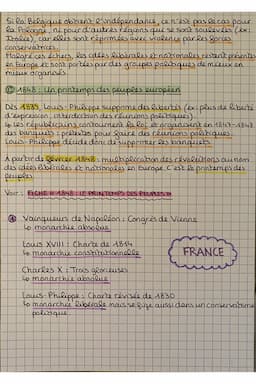 Si la Belgique obtient l'indépendance, ce n'est pas le cas pour
la Pologne, ni pour d'autres régions qui se sont soulevées (ex:
Italie), car elles sont réprimées avec violence par les forces
conservatrices.
Malgré ces échecs, les idées libérales et nationales restent présentes
en Europe et sont portées par des groupes politiques de mieux en
mieux organisés.
1848 : un printemps des peuples européen
Dès 1835, Louis-Philippe supprime des libertés (ex: plus de liberté
d'expression, interdiction des réunions politiques).
↳ Les républicains contournent la loi et organisent en 1847-1848
des banquets : prétextes pour faire des réunions politiques.
Louis-Philippe décide donc de supprimer les banquets.
A partir de février 1848 : multiplication des révolutions au nom
des idées libérales et nationales en Europe. C'est le printemps des
peuples.
Voir : FICHE « 1848 : LE PRINTEMPS DES PEUPLES »
Vainqueurs de Napoléon : Congrès de Vienne
↳ monarchie absolue
Louis XVIII : Charte de 1814
↳ monarchie constitutionnelle
FRANCE
Charles X : Trois glorieuses
↳ monarchie absolue
Louis-Philippe : Charte révisée de 1830
↳ monarchie libérale mais se fige aussi dans un conservatisme
politique